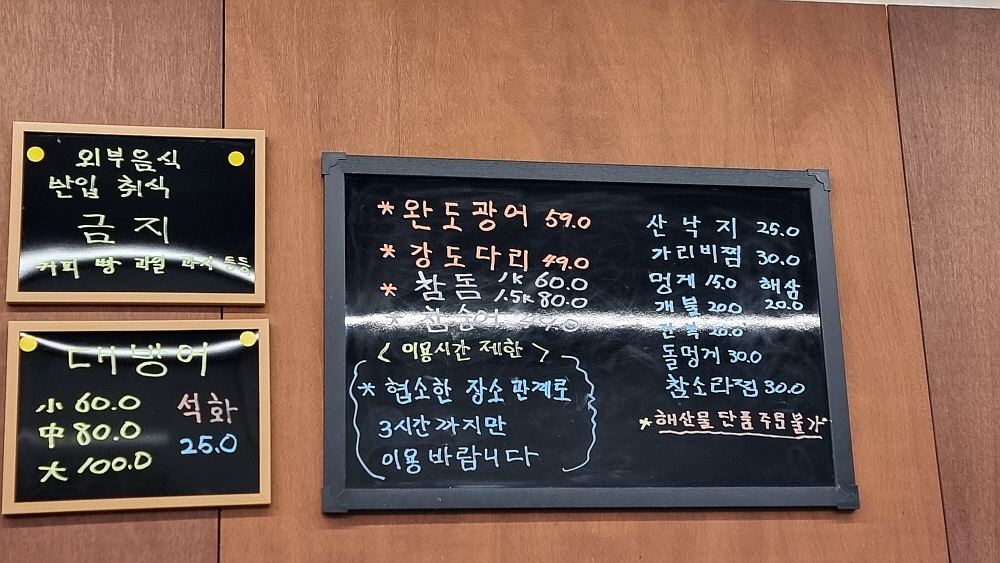 외부음식
반입 취식
금지
커피 빵 과일 과자 등등
대방어
小 60.0
中 80.0
大 100.0
석화
25.0
* 완도광어 59.0
* 강도다리 49.0
* 참돔 1K 60.0
1.5K 80.0
*
< 이용시간 제한 >
* 협소한 장소 관계로
3시간까지만
이용 바랍니다
산낙지 25.0
가리비찜 30.0
멍게 15.0 해삼
개불 20.0 20.0
전복 20.0
돌멍게 30.0
참소라찜 30.0
* 해산물 단품 주문 불가